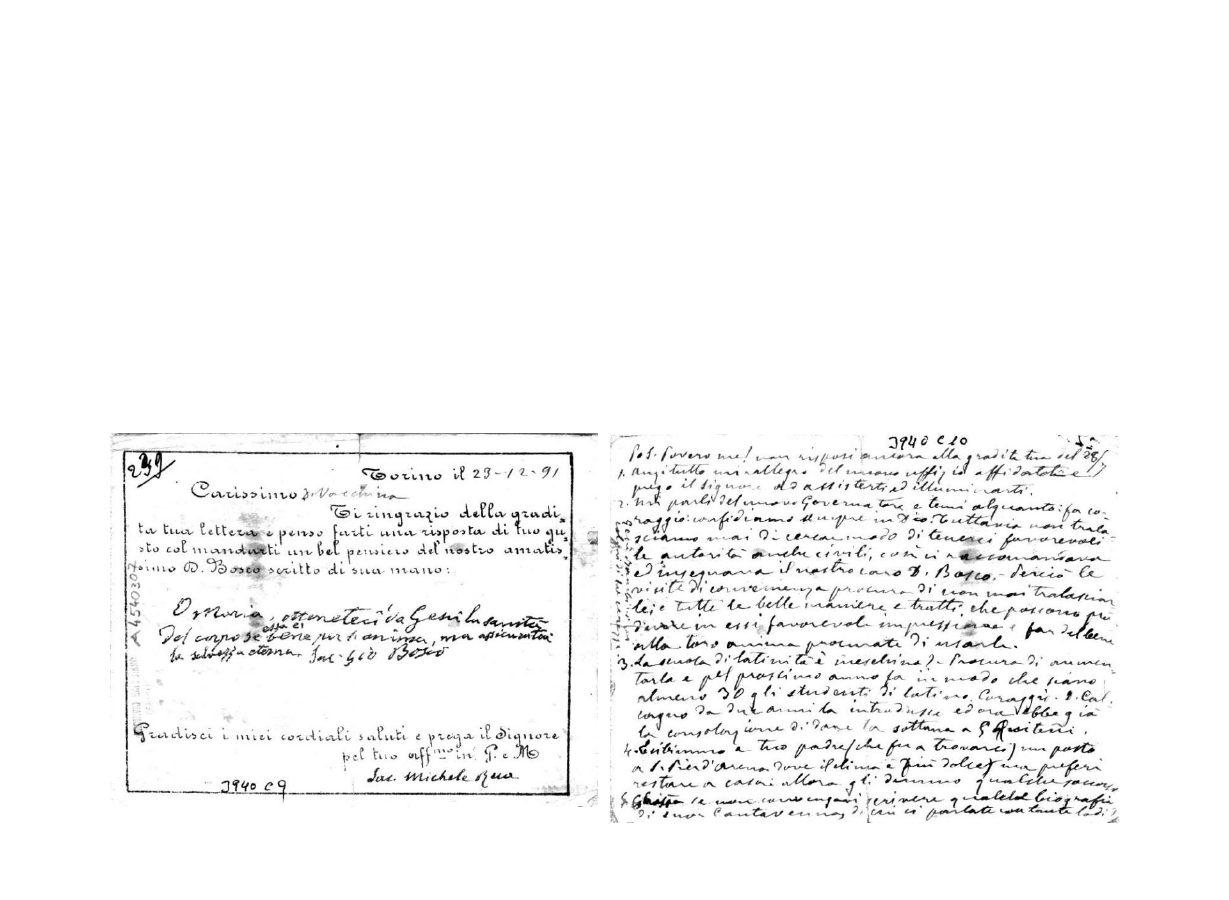 239
Torino il 23-12-91
Carissimo D. Vacchina
Ti ringrazio della gradi-
ta tua lettera e penso farti una risposta di tuo gu-
sto col mandarti un bel pensiero del nostro amatis-
simo D. Bosco scritto di sua mano:
O Maria, otteneteci da Gesù la sanità
del corpo se essa è bene per l'anima, ma assicurateci
la salvezza eterna. Sac. Gio Bosco
Gradisci i miei cordiali saluti e prega il Signore
pel tuo aff.mo in G. e M
Sac. Michele Rua
3940 C9
A 4540307
3940 C10
P.S. Povero me! non risposi ancora alla gradita tua del 28/7
1. anzitutto mi rallegro del nuovo uffizio affidatoti e
prego il Signore ad assisterti ed illuminarti.
2. Mi parli del nuovo Governatore e temi alquanto: fa co-
raggio: confidiamo sempre in Dio. Tuttavia non trala-
sciamo mai di cercar modo di tenerci favorevoli
le autorità anche civili, così ci raccomandava
ed insegnava il nostro caro D. Bosco. Perciò le
visite di convenienza procura di non mai tralasciar
le; e tutte le belle maniere e tratti, che possono pro
durre in essi favorevole impressione e far del bene
alla loro anima procurate di usarle.
3. La scuola di latinità è meschina. Procura di aumen-
tarla e pel prossimo anno fa in modo che siano
almeno 30 gli studenti di latino. Coraggio. D. Cal
cagno da due anni la introdusse ed ora ebbe già
la consolazione di dare la sottana a 5
4. Esibimmo a tuo padre (che fu a trovarci) un posto
a S. Pier d'Arena dove il clima è più dolce; ma preferì
restare a casa: allora gli demmo qualche soccorso
5. se non convengavi scrivere qualche biografia
di suor Cantavenna, di cui ci parlate con tante lodi